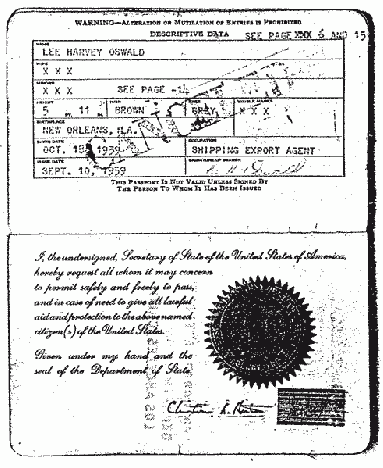 WARNING—ALTERATION OR MUTILATION OF ENTRIES IS PROHIBITED
DESCRIPTIVE DATA SEE PAGE XXX 6 AND 15
LEE HARVEY OSWALD
X X X
X X X SEE PAGE
5 11 BROWN GRAY X X X
BIRTHPLACE
NEW ORLEANS, LA.
BIRTH DATE OCCUPATION
OCT. 18, 1939 SHIPPING EXPORT AGENT
ISSUE DATE
SEPT. 10, 1959
THIS PASSPORT IS NOT VALID UNLESS SIGNED BY
THE PERSON TO WHOM IT HAS BEEN ISSUED
I, the undersigned, Secretary of State of the United States of America,
hereby request all whom it may concern
to permit safely and freely to pass,
and in case of need to give all lawful
aid and protection to the above named
citizen(s) of the United States.
Given under my hand and the
seal of the Department of State.